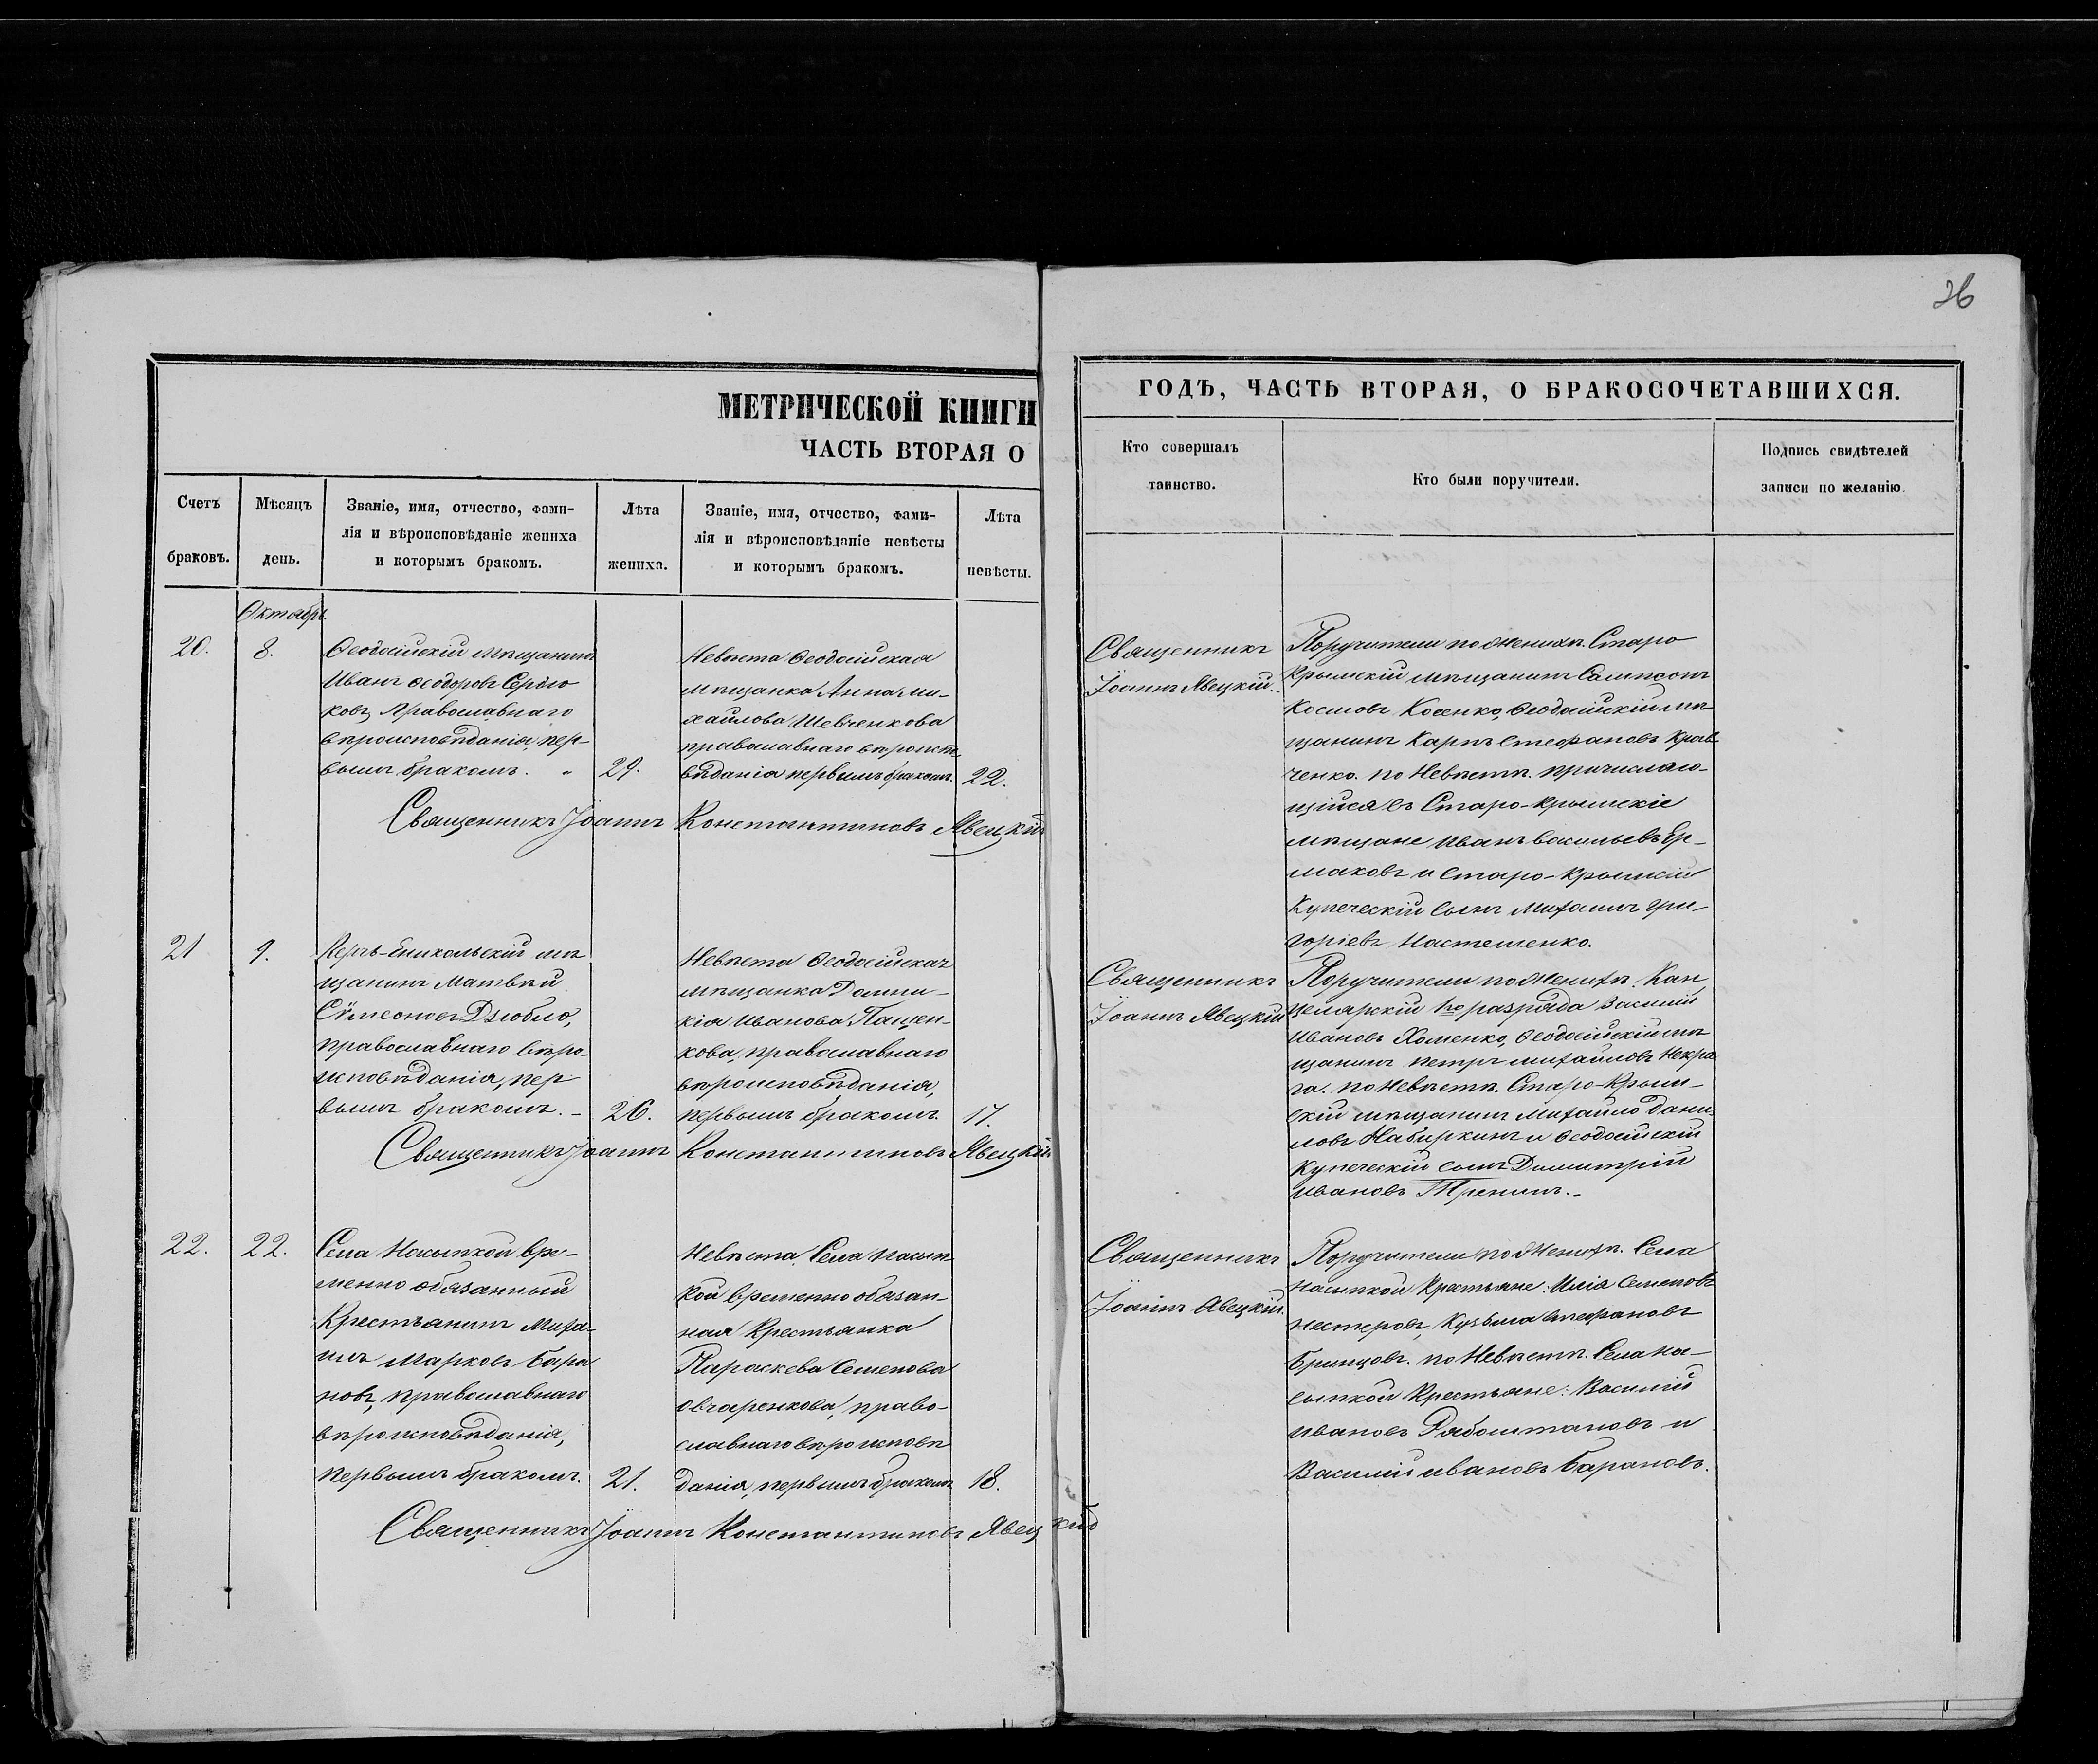 26
МЕТРИЧЕСКОЙ КНИГИ
ЧАСТЬ ВТОРАЯ О
ГОДЪ, ЧАСТЬ ВТОРАЯ, О БРАКОСОЧЕТАВШИХСЯ.
Счетъ
браковъ.
Мѣсяцъ
день.
Званіе, имя, отчество, фами-
лія и вѣроисповѣданіе жениха
и которымъ бракомъ.
Лѣта
жениха.
Званіе, имя, отчество, фами-
лія и вѣроисповѣданіе невѣсты
и которымъ бракомъ.
Лѣта
невѣсты.
Кто совершалъ
таинство.
Кто были поручители.
Подпись свидѣтелей
записи по желанію.
Октябрь.
20.
8.
Ѳеодосійскій мѣщанинъ
Иванъ Ѳеодоровъ Сердю
ковъ, православнаго
вѣроисповѣданія, пер-
вымъ бракомъ.
29.
Невѣста Ѳеодосійская
мѣщанка Анна Ми-
хайлова Шевченкова
православнаго вѣроиспо
вѣданія первымъ бракомъ.
22.
Священникъ Іоаннъ Константиновъ Явецкій
Священникъ
Іоаннъ Явецкій.
Поручители по Женихѣ. Старо
Крымскій мѣщанинъ Сампсонъ
Космовъ Косенко, Ѳеодосійскій мѣ
щанинъ Карпъ Стефановъ Крав
ченко. по Невѣстѣ. причисляю-
щійся въ Старо-Крымскіе
мѣщане Иванъ Васильевъ Ер-
маковъ и Старо-Крымскій
Купеческій сынъ Михаилъ Гри-
горіевъ Настешенко.
21
9.
Керчь-Еникольскій мѣ
щанинъ Матвѣй
Сѵмеоновъ Дзюбло,
православнаго вѣро-
исповѣданія, пер
вымъ бракомъ.
26.
Невѣста Ѳеодосійская
мѣщанка Домни-
кія Иванова Пащен-
кова, православнаго
вѣроисповѣданія,
первымъ бракомъ.
17.
Священникъ Іоаннъ Константиновъ Явецкій
Священникъ
Іоаннъ Явецкій
Поручители по Женихѣ. Кан
целярскій 1го разряда Василій
Ивановъ Хоменко, Ѳеодосійскій мѣ
щанинъ Петръ Михайловъ Некра
га. по Невѣстѣ. Старо-Крым-
скій мѣщанинъ Михайло Дани
ловъ Набиркинъ и Ѳеодосійскій
Купеческій сынъ Димитрій
Ивановъ Тренинъ.
22.
22.
Села Насыпкой вре-
менно обязанный
Крестьянинъ Миха-
илъ Марковъ Бара
новъ, православнаго
вѣроисповѣданія,
первымъ бракомъ.
21.
Невѣста. Села Насып-
кой временно обязан-
ная Крестьянка
Параскева Семенова
Овчаренкова, право-
славнаго вѣроисповѣ
данія, первымъ бракомъ
18.
Священникъ Іоаннъ Константиновъ Явецкій
Священникъ
Іоаннъ Явецкій.
Поручители по Женихѣ. Села
Насыпкой Крестьяне: Илія Семеновъ
Нестеровъ, Кузьма Стефановъ
Бринцовъ. по Невѣстѣ. Села На-
сыпкой Крестьяне: Василій
Ивановъ Рябоштановъ и
Василій Ивановъ Барановъ.